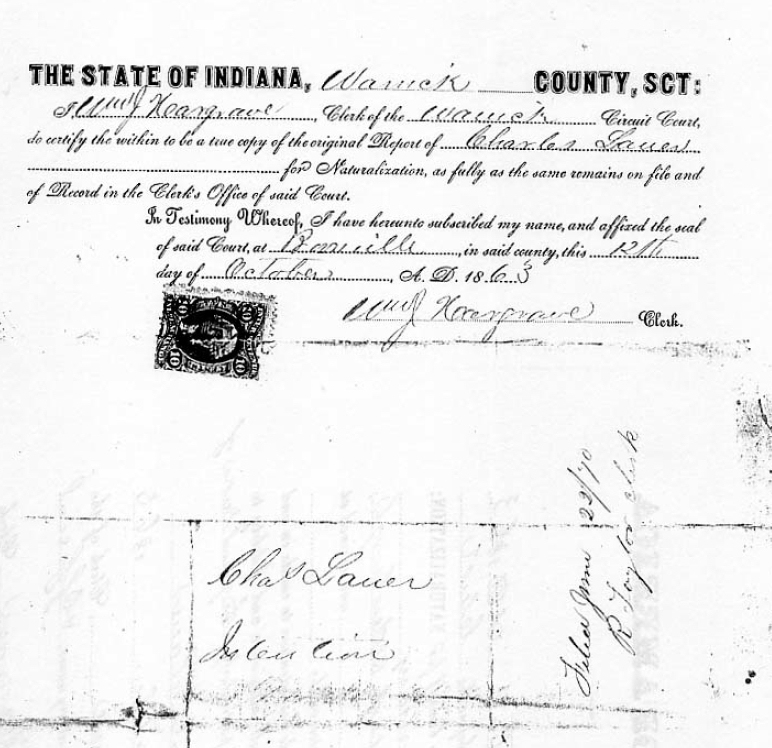 THE STATE OF INDIANA, Warrick COUNTY, SCT:
I Wm J Hargrave, Clerk of the Warrick Circuit Court,
do certify the within to be a true copy of the original Report of Charles Lauer
for Naturalization, as fully as the same remains on file and
of Record in the Clerk's Office of said Court.
In Testimony Whereof, I have hereunto subscribed my name, and affixed the seal
of said Court, at Boonville, in said county, this 12th
day of October, A. D. 1863
Wm J Hargrave Clerk.
Chas Lauer
Intention
Filed June 22/70
R Taylor clerk